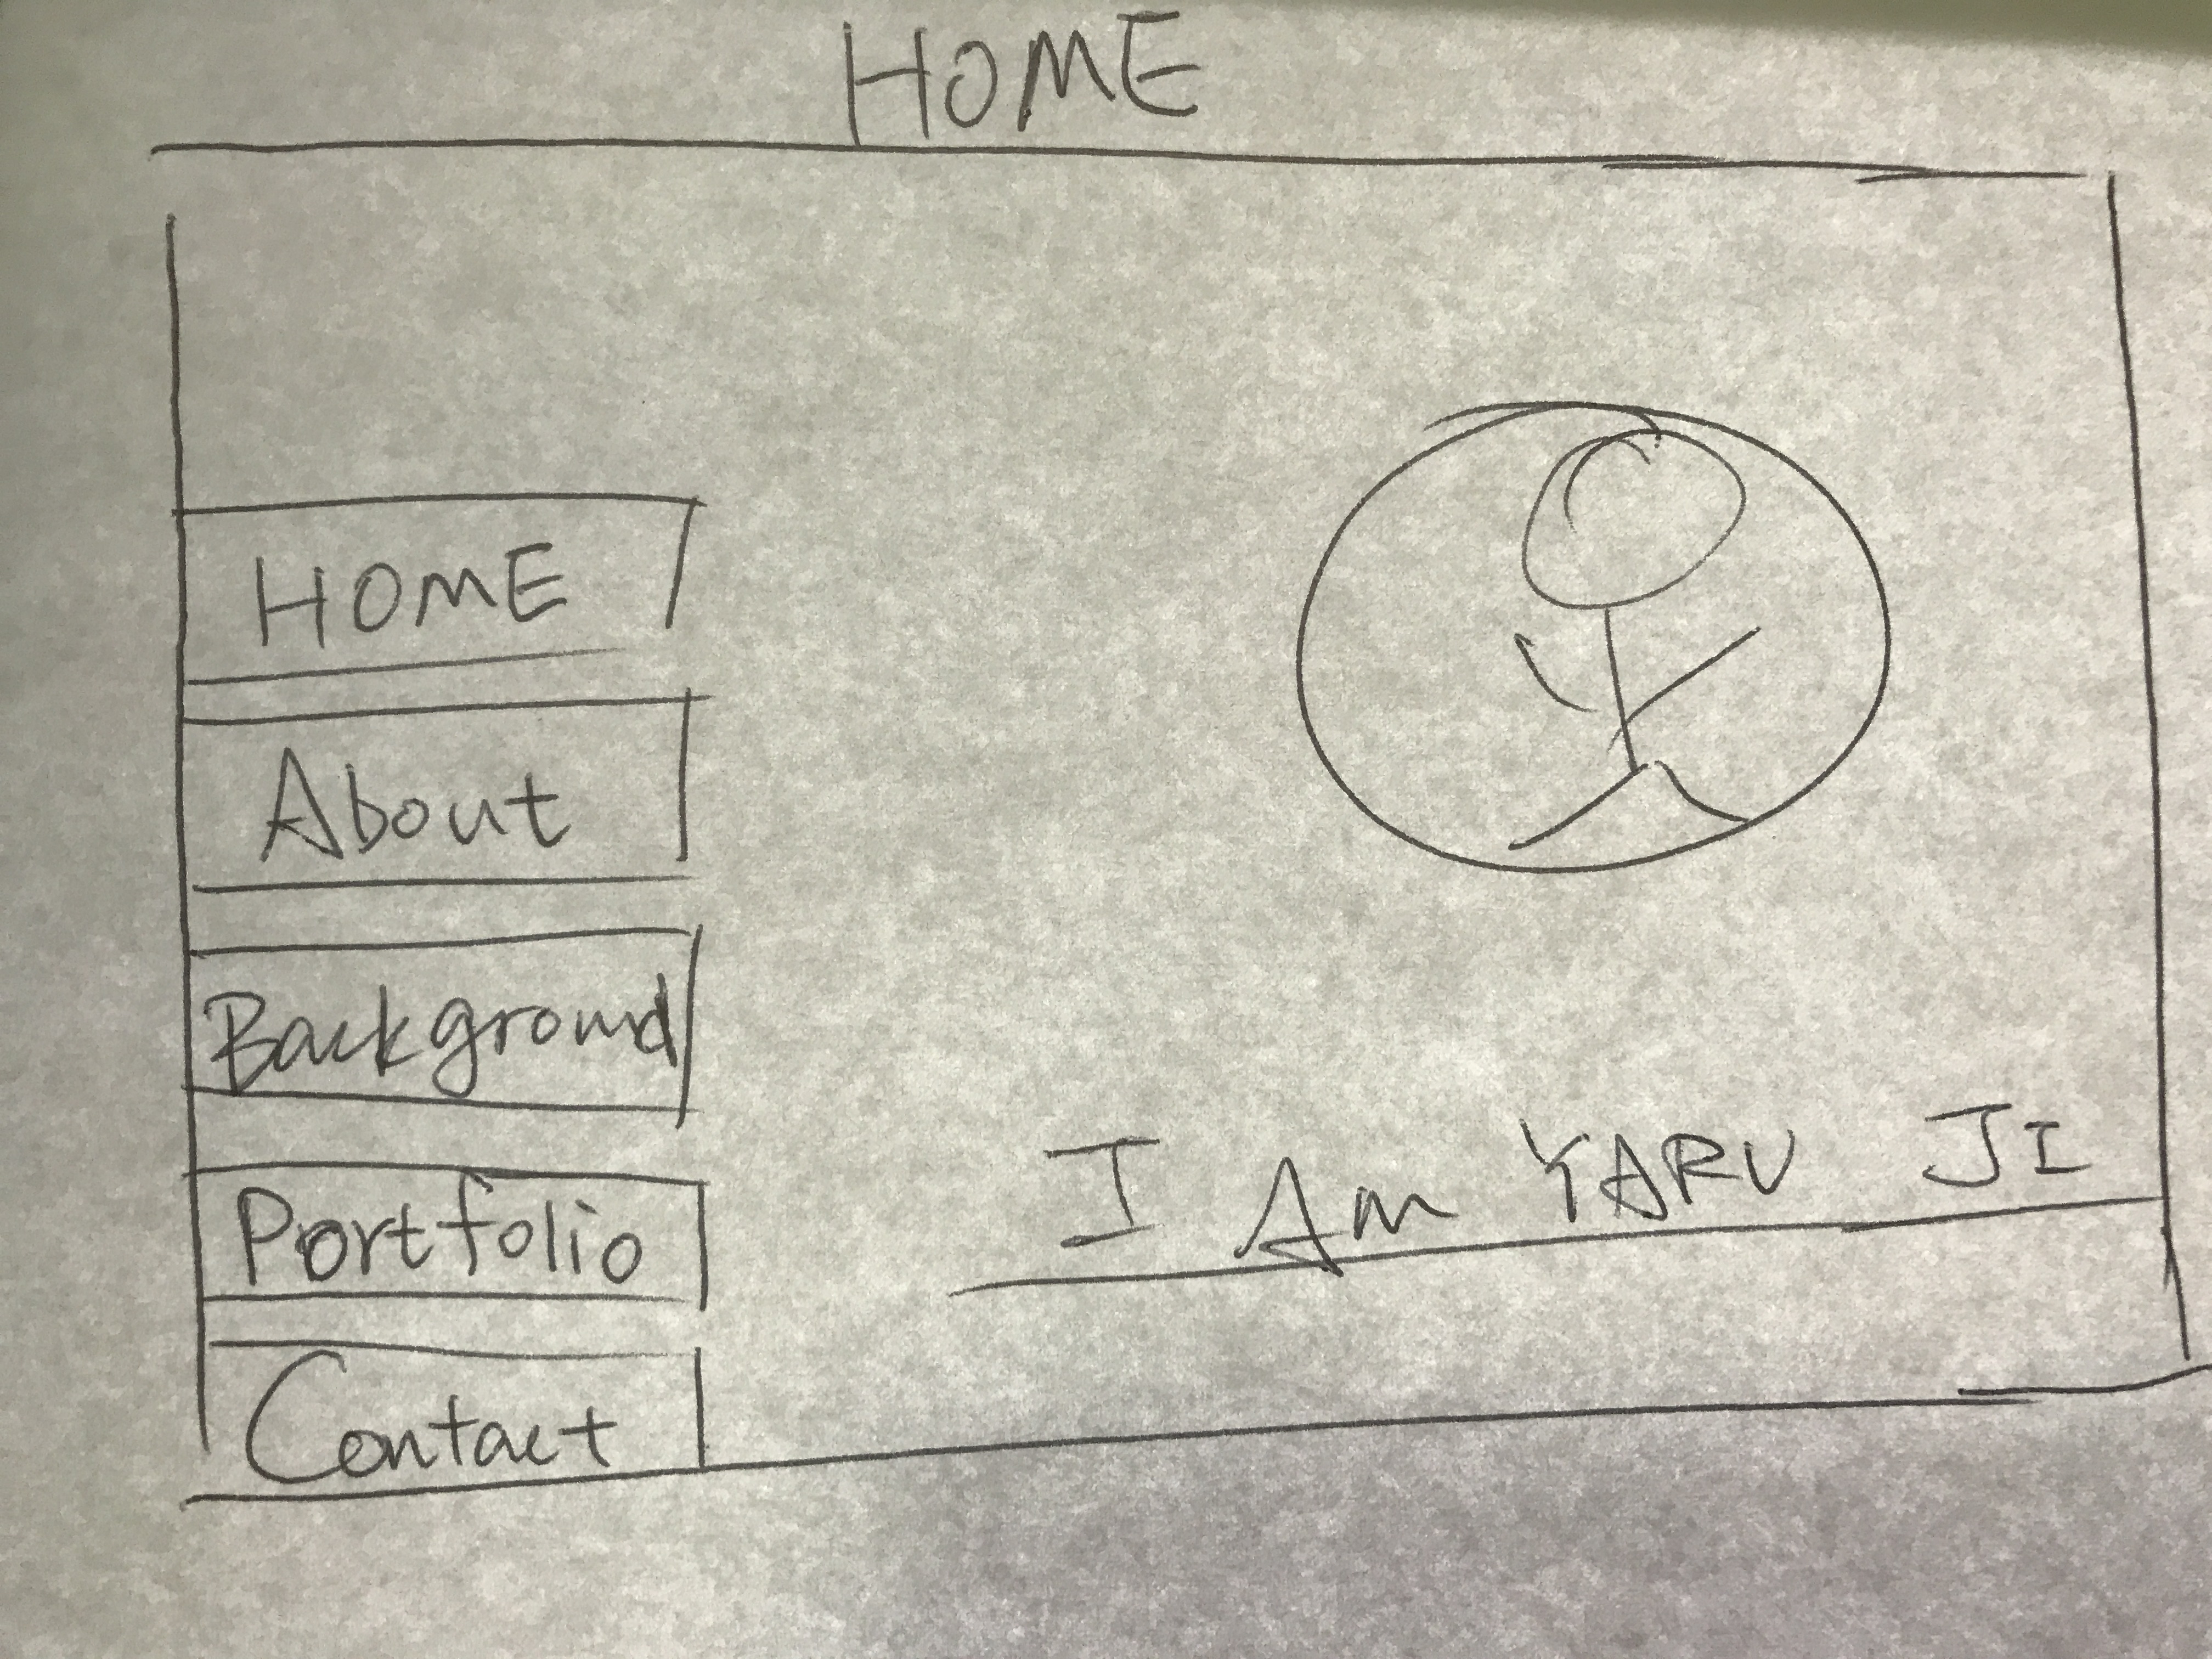 HOME
HOME
About
Background
Portfolio
Contact
I Am YARU JI